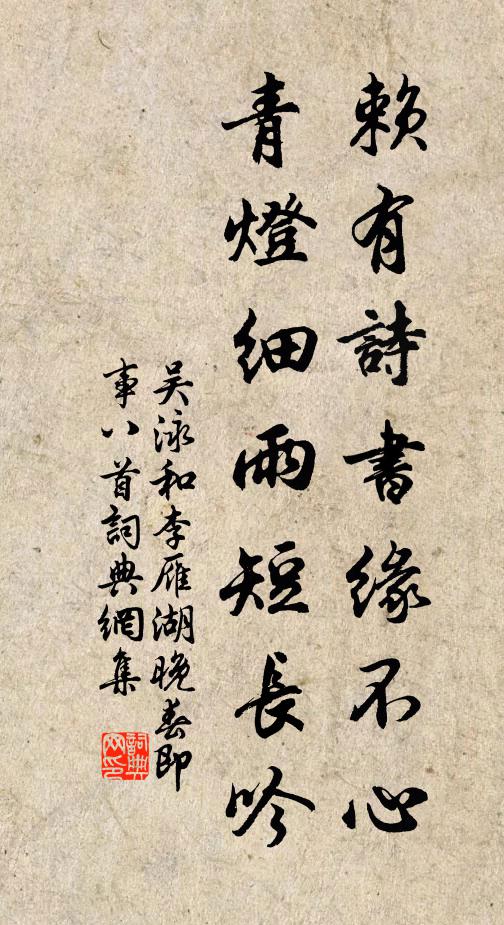 賴有詩書緣不心
青燈細雨短長吟
吳泳和李雁湖晚春即
事八首詞典網集
詞典網印